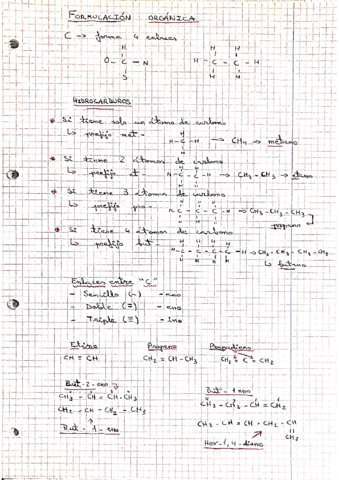 FORMULACIÓN ORGÁNICA
C → forma 4 enlaces
H
O - C - N
S
H H
H - C - C - H
H H
HIDROCARBUROS
* Si tiene solo un átomo de carbono
↳ prefijo met-
H
H-C-H → CH4 → metano
H
* Si tiene 2 átomos de carbono
↳ prefijo et-
H H
H-C-C-H → CH3-CH3 → etano
H H
* Si tiene 3 átomos de carbono
↳ prefijo pro-
H-C-C-C-H → CH3-CH2-CH3
propano
* Si tiene 4 átomos de carbono
↳ prefijo but-
H H H H
H-C-C-C-C-H → CH3-CH2-CH2-CH3
H H H H
↳ butano
Enlaces entre "C"
- Sencillo (-) -ano
- Doble (=) -eno
- Triple (≡) -ino
Etino Propeno Propadieno
CH ≡ CH CH2 = CH-CH3 CH2 = C = CH2
But-2-eno
CH3 - CH = CH-CH3
CH2 = CH - CH2 - CH3
But-1-eno
But-1-eno
CH3 - CH2 - CH = CH2
CH3 - CH = CH - CH2 - CH
||
CH2
Hex-1,4-dieno